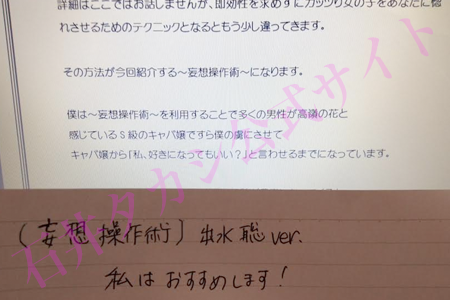 詳細はここではお話しませんが、即効性を求めずにガッツリ女の子をあなたに惚
れさせるためのテクニックとなるともう少し違ってきます。
その方法が今回紹介する～妄想操作術～になります。
僕は～妄想操作術～を利用することで多くの男性が高嶺の花と
感じているS級のキャバ嬢ですら僕の虜にさせて
キャバ嬢から「私、好きになってもいい？」と言わせるまでになっています。
(妄想操作術) 出水 聡 ver.
私はおすすめします!
石井タカシ公式サイト